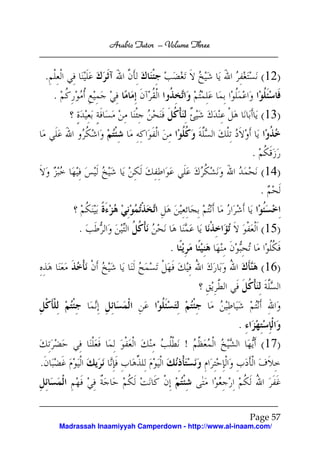 Arabic Tutor – Volume Three
(12) نَسْتَغْفِرُ اللهَ يَا شَيْخُ لاَ تَغْضَبْ جِئْنَاكَ لِأَنَّ اللهَ آثَرَكَ عَلَيْنَا فِي الْعِلْمِ.
فَاسْئَلُوا وَاعْمَلُوا بِمَا عَلِمْتُمْ وَاتَّخِذُوا الْقُرْآنَ إِمَامًا فِيْ جَمِيْعِ أُمُوْرِكُمْ .
(13) يَا أَبَانَا هَلْ عِنْدَكَ شَيْئٌ لِنَأْكُلَ فَنَحْنُ جِئْنَا مِنْ مَسَافَةٍ بَعِيْدَةٍ ؟
خُذُوا يَا أَوْلاَدُ تِلْكَ السَّلَّةَ وَكُلُوا مِنَ الْفَوَاكِهِ مَا شِئْتُمْ وَاشْكُرُوا اللهَ عَلَي مَا
رَزَقَكُمْ .
(14) نَحْمَدُ اللهَ وَنَشْكُرُكَ عَلَي عَوَاطِفِكَ لَكِنْ يَا شَيْخُ لَيْسَ فِيْهَا خُبْزٌ وَلاَ
لَحْمٌ .
اخْسَئُوا يَا أَشْرَارُ مَا أَنْتُمْ بِجَائِعِيْنَ هَلِ اتَّخَذْتُمُوْنِيْ هُزْءَةً بَيْنَكُمْ ؟
(15) الْعَفْوَ لاَ تُؤَاخِذْنَا يَا عَمَّنَا هَا نَحْنُ نَأْكُلُ التِّيْنَ وَالرُّطَبَ .
فَكُلُوا مَا تُحِبُّوْنَ مِنْهَا هَنِيْئًا مَرِيْئًا .
(16) هَنَأَكَ اللهُ وَبَارَكَ اللهُ فِيْكَ فَهَلْ تَسْمَحُ لَنَا يَا شَيْخُ أَنْ نَأْخُذَ مَعَنَا هَذِهِ
السَّلَّةَ لِنَأْكُلَ فِي الطَّرِيْقِ ؟
وَاللهِ أَنْتُمْ شَيَاطِيْنُ مَا جِئْتُمْ لِتَسْئَلُوا عَنِ الْمَسَائِلِ إِنَّمَا جِئْتُمْ لِلْأَكْلِ
وَالْإِسْتِهْزَاءِ .
(17) أَيُّهَا الشَّيْخُ الْمُعَظَّمُ ! نَطْلُبُ مِنْكَ الْعَفْوَ لِمَا فَعَلْنَا فِي حَضْرَتِكَ
خِلاَفَ الْأَدَبِ وَالْإِحْتِرَامِ وَنَسْتَأْذِنُكَ الْيَوْمَ لِلذِّهَابِ فَإِنَّا نَرَيكَ الْيَوْمَ غَضْبَانَ.
غَفَرَ اللهُ لَكُمْ ارْجِعُوا مَتَى شِئْتُمْ إِنْ كَانَتْ لَكُمْ حَاجَةٌ فِيْ فَهْمِ الْمَسَائِلِ
Page 57
Madrassah Inaamiyyah Camperdown - http://www.al-inaam.com/